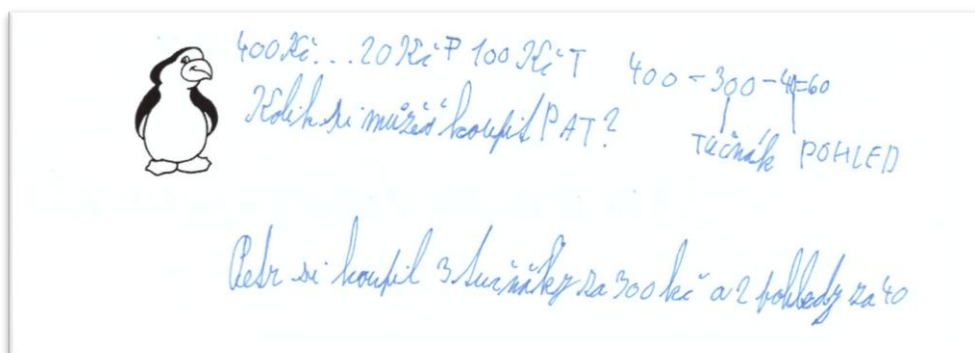 400 Kč... 20 Kč P 100 Kč T
400 - 300 - 40=60
Kolik si můžeš koupit P A T?
TUČŇÁK POHLED
Petr si koupil 3 tučňáky za 300 kč a 2 pohledy za 40